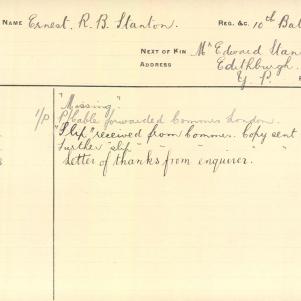 NAME Ernest. R. B. Stanton. REG. &C. 10th Bat
NEXT OF KIN Mr Edward Stan
ADDRESS Edithburgh.
Y. P.
"Missing."
1/P P/Cable forwarded Commrs London.
"Slip" received from Commrs. Copy sent
Further "slip" " " "
Letter of thanks from enquirer.